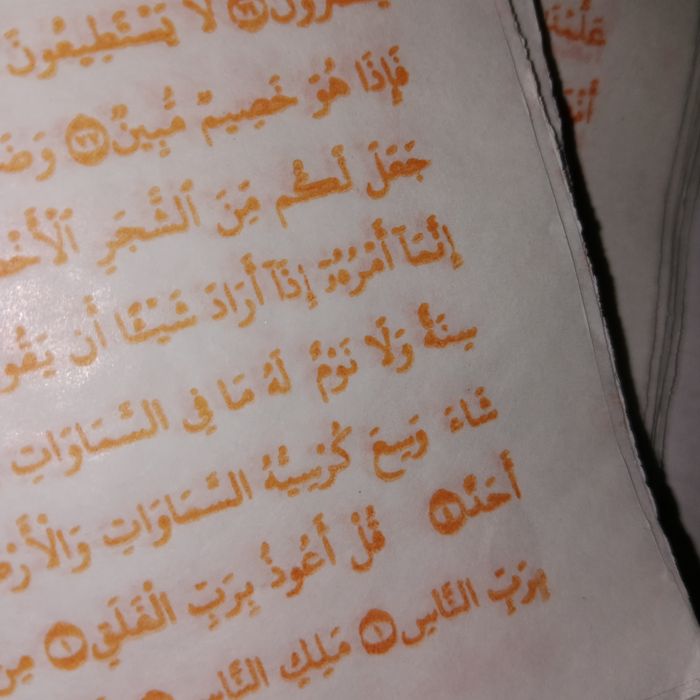 لَا يَسْتَطِيعُونَ
فَإِذَا هُوَ خَصِيمٌ مُّبِينٌ
جَعَلَ لَكُم مِّنَ ٱلشَّجَرِ ٱلْأَخْ
إِنَّمَآ أَمْرُهُۥٓ إِذَآ أَرَادَ شَيْـًٔا أَن يَقُو
سِنَةٌ وَلَا نَوْمٌ لَهُ مَا فِي السَّمَاوَاتِ
شَاءَ وَسِعَ كُرْسِيُّهُ السَّمَاوَاتِ وَالْأَرْضَ
أَحَدٌ قُلْ أَعُوذُ بِرَبِّ الْفَلَقِ ١ مِن
بِرَبِّ النَّاسِ ١ مَلِكِ النَّاسِ